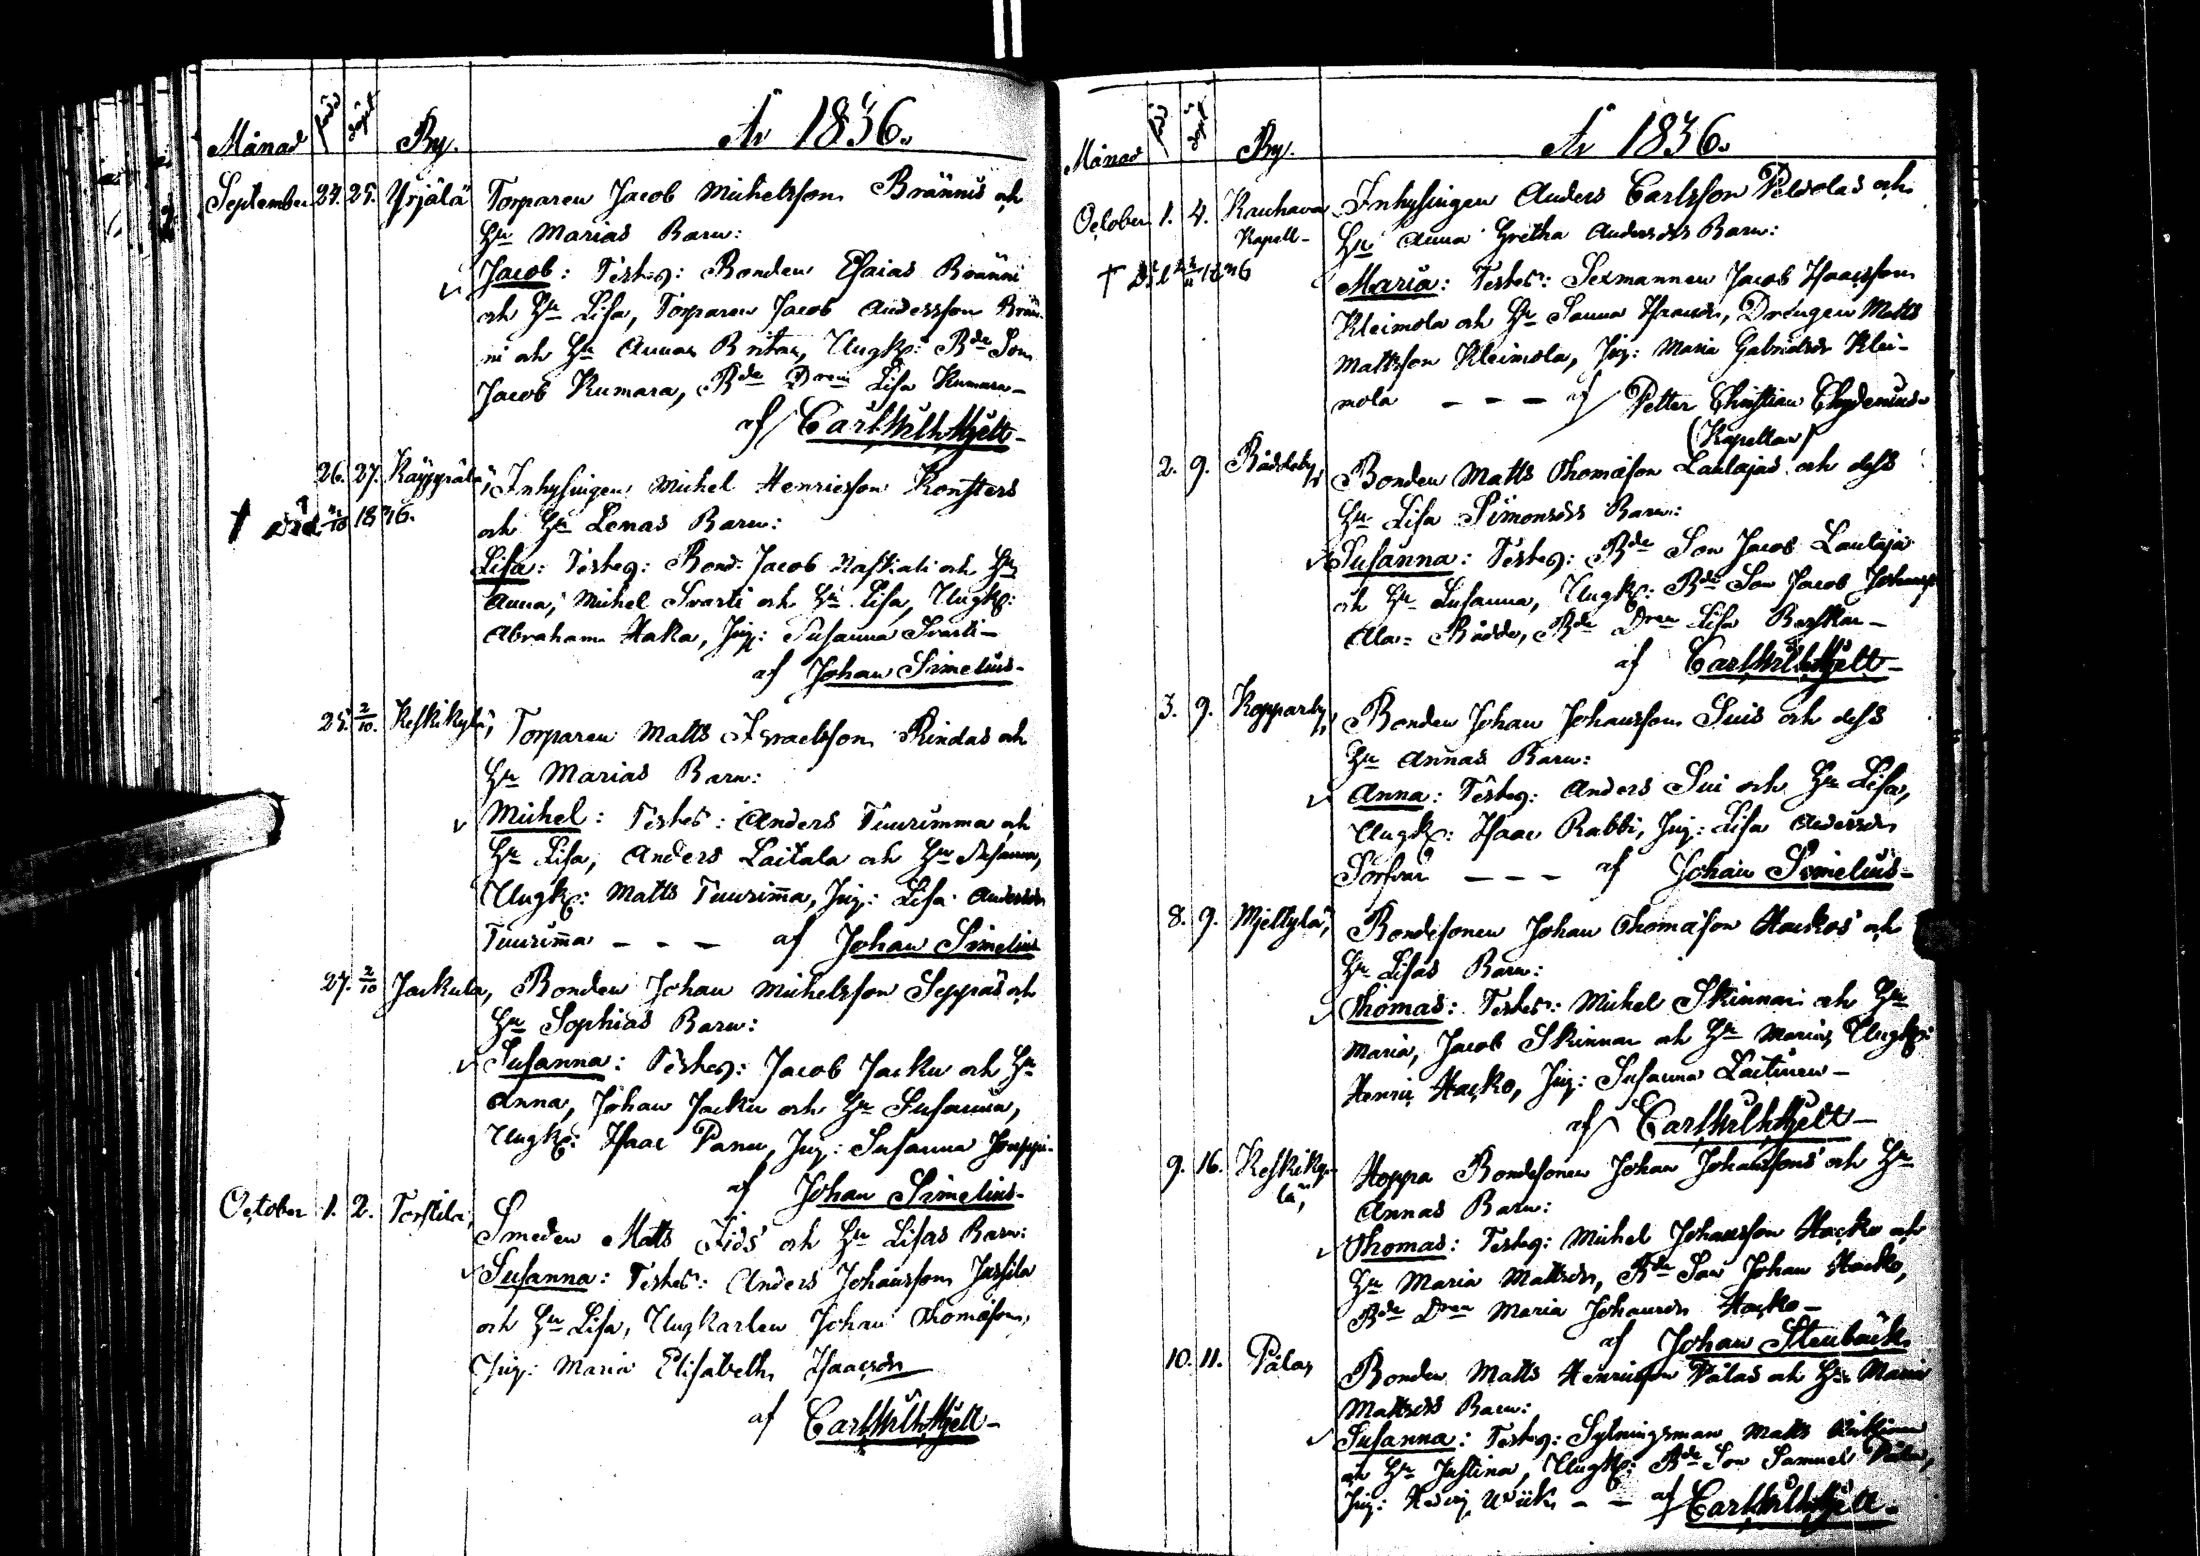 Månad född döpt By. År 1836.
September 24. 25. Yrjälä Torparen Jacob Michelsson Brännis och
Hu Marias Barn:
Jacob: Testes: Bonden Esaias Bränni
och Hu Lisa, Torparen Jacob Andersson Brän-
ni och Hu Annas Brita, Ungk: Bde Son
Jacob Kumara, Bde Dren Lisa Kumara -
af Carl Wilh Hjelt -
26. 27. Käyprälä, Inhysingen Michel Henricsson Konsters
† 1836. och Hu Lenas Barn:
Lisa: Testes: Bond: Jacob och Hu
Anna, Michel Svarti och Hu Lisa, Ungk:
Abraham Haka, Pig: Susanna Svarti -
af Johan Simelius -
25. 2/10. Keskikylä, Torparen Matts Israelsson Rindas och
Hu Marias Barn:
Michel: Testes: Anders Tuurimma och
Hu Lisa, Anders Laitala och Hu Susanna,
Ungk: Matts Tuurim̄a, Pig: Lisa Andersdr
Tuurim̄a - - - af Johan Simelius
27. 2/10 Jackula, Bonden Johan Michelsson Seppäs och
Hu Sophias Barn:
Susanna: Testes: Jacob Jacku och Hu
Anna, Johan Jacku och Hu Susanna,
Ungk: Isaac Panu, Pig: Susanna Jouppi -
af Johan Simelius -
October 1. 2. Torstila, Smeden Matts Fids och Hu Lisas Barn:
Susanna: Testes: Anders Johansson Jussila
och Hu Lisa, Ungkarlen Johan Thomasson,
Pig: Maria Elisabeth Isaacsdr
af Carl Wilh Hjelt -
Månad född döpt By. År 1836.
October 1. 4. Kauhava Inhysingen Anders Carlsson Peldolas och
Kapell - Hu Anna Gretha Andersdrs Barn:
† Maria: Testes: Sexmannen Jacob Isaacsson
Kleimola och Hu Sanna Isaacsdr, Drängen Matts
Mattsson Kleimola, Pig: Maria Gabrielsdr Klei-
mola - - - af Petter Christian Chydenius
(Kapellan)
2. 9. Räddeby, Bonden Matts Thomasson Laulajas och dess
Hu Lisa Simonsdrs Barn:
Susanna: Testes: Bde Son Jacob Laulaja
och Hu Susanna, Ungk: Bde Son Jacob
Ala-Rädde, Bde Dren Lisa -
af Carl Wilh Hjelt -
3. 9. Kopparby, Bonden Johan Johansson Suis och dess
Hu Annas Barn:
Anna: Testes: Anders Sui och Hu Lisa,
Ungk: Isaac Rabbi, Pig: Lisa Andersdr
Sorfvar - - - af Johan Simelius -
8. 9. Mjelkylä, Bondesonen Johan Thomasson Hackos och
Hu Lisas Barn:
Thomas: Testes: Michel Skinnari och Hu
Maria, Jacob Skinnar och Hu Maria, Ungk:
Henric Hacko, Pig: Susanna Laitinen -
af Carl Wilh Hjelt -
9. 16. Keskiky- Hoppa Bondesonen Johan Johanssons och Hu
lä, Annas Barn:
Thomas: Testes: Michel Johansson Hacko och
Hu Maria Mattsdr, Bde Son Johan Hacko,
Bde Dren Maria Johansdr Hacko -
af Johan Stenbäck
10. 11. Pälas Bonden Matts Henricsson Pälas och Hu Maria
Mattsdrs Barn:
Susanna: Testes: Sytningsman Matts
och Hu Justina, Ungk: Bde Son Samuel
Pig: Hedvig Wiik - - af Carl Wilh Hjelt -